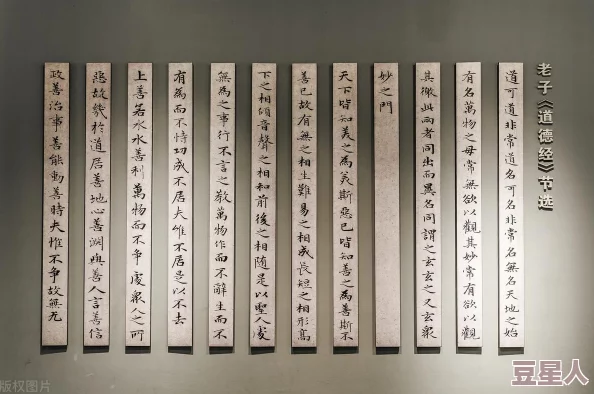 老子《道德经》节选
道可道非常道名可名非常名無名天地之始
有名萬物之母常無欲以觀其妙常有欲以觀
其徼此兩者同出而異名同謂之玄玄之又玄衆
妙之門
天下皆知美之為美斯惡已皆知善之為善斯不
善已故有無之相生難易之相成長短之相形高
下之相傾音聲之相和前後之相随是以聖人處
無為之事行不言之教萬物作而不辭生而不
有為而不恃功成不居夫唯不居是以不去
上善若水水善利萬物而不争處衆人之所
惡故幾於道居善地心善淵與善人言善信
政善治事善能動善時夫惟不争故無尤
版权图片
豆星人